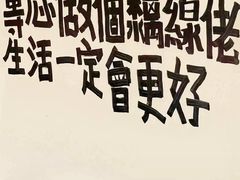 專心做個黐線佬
生活一定會更好